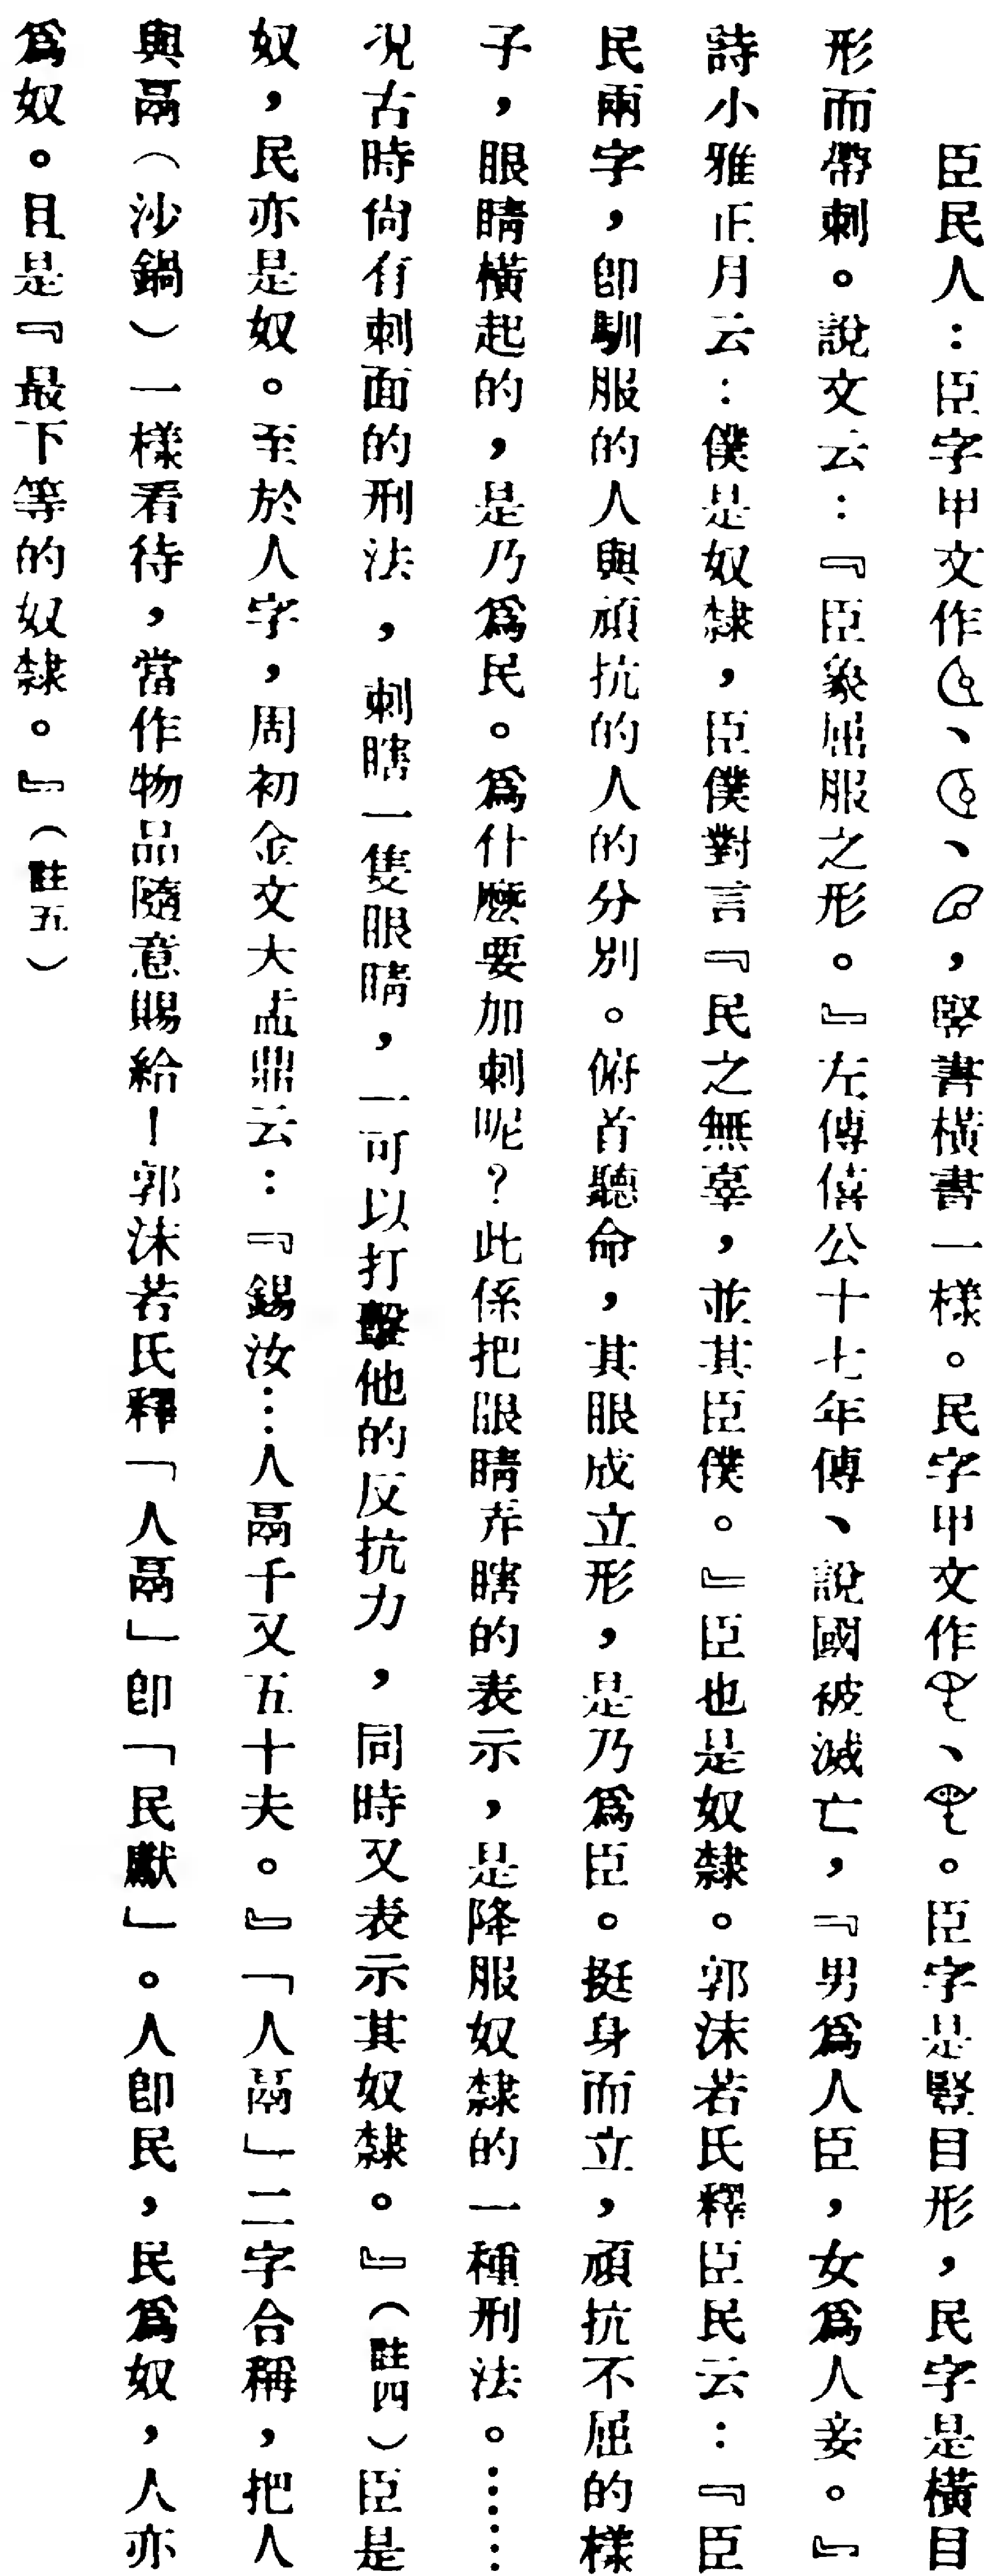 臣民人：臣字甲文作、、，竪書橫書一樣。民字甲文作、。臣字是竪目形，民字是橫目
形而帶刺。說文云：『臣象屈服之形。』左傳僖公十七年傳、說國被滅亡，『男爲人臣，女爲人妾。』
詩小雅正月云：僕是奴隸，臣僕對言『民之無辜，並其臣僕。』臣也是奴隸。郭沫若氏釋臣民云：『臣
民兩字，卽馴服的人與頑抗的人的分別。俯首聽命，其眼成立形，是乃爲臣。挺身而立，頑抗不屈的樣
子，眼睛橫起的，是乃爲民。爲什麼要加刺呢？此係把眼睛弄瞎的表示，是降服奴隸的一種刑法。……
况古時尙有刺面的刑法，刺瞎一隻眼睛，一可以打擊他的反抗力，同時又表示其奴隸。』（註四）臣是
奴，民亦是奴。至於人字，周初金文大盂鼎云：『錫汝…人鬲千又五十夫。』「人鬲」二字合稱，把人
與鬲（沙鍋）一樣看待，當作物品隨意賜給！郭沫若氏釋「人鬲」卽「民獻」。人卽民，民爲奴，人亦
爲奴。且是『最下等的奴隸。』（註五）